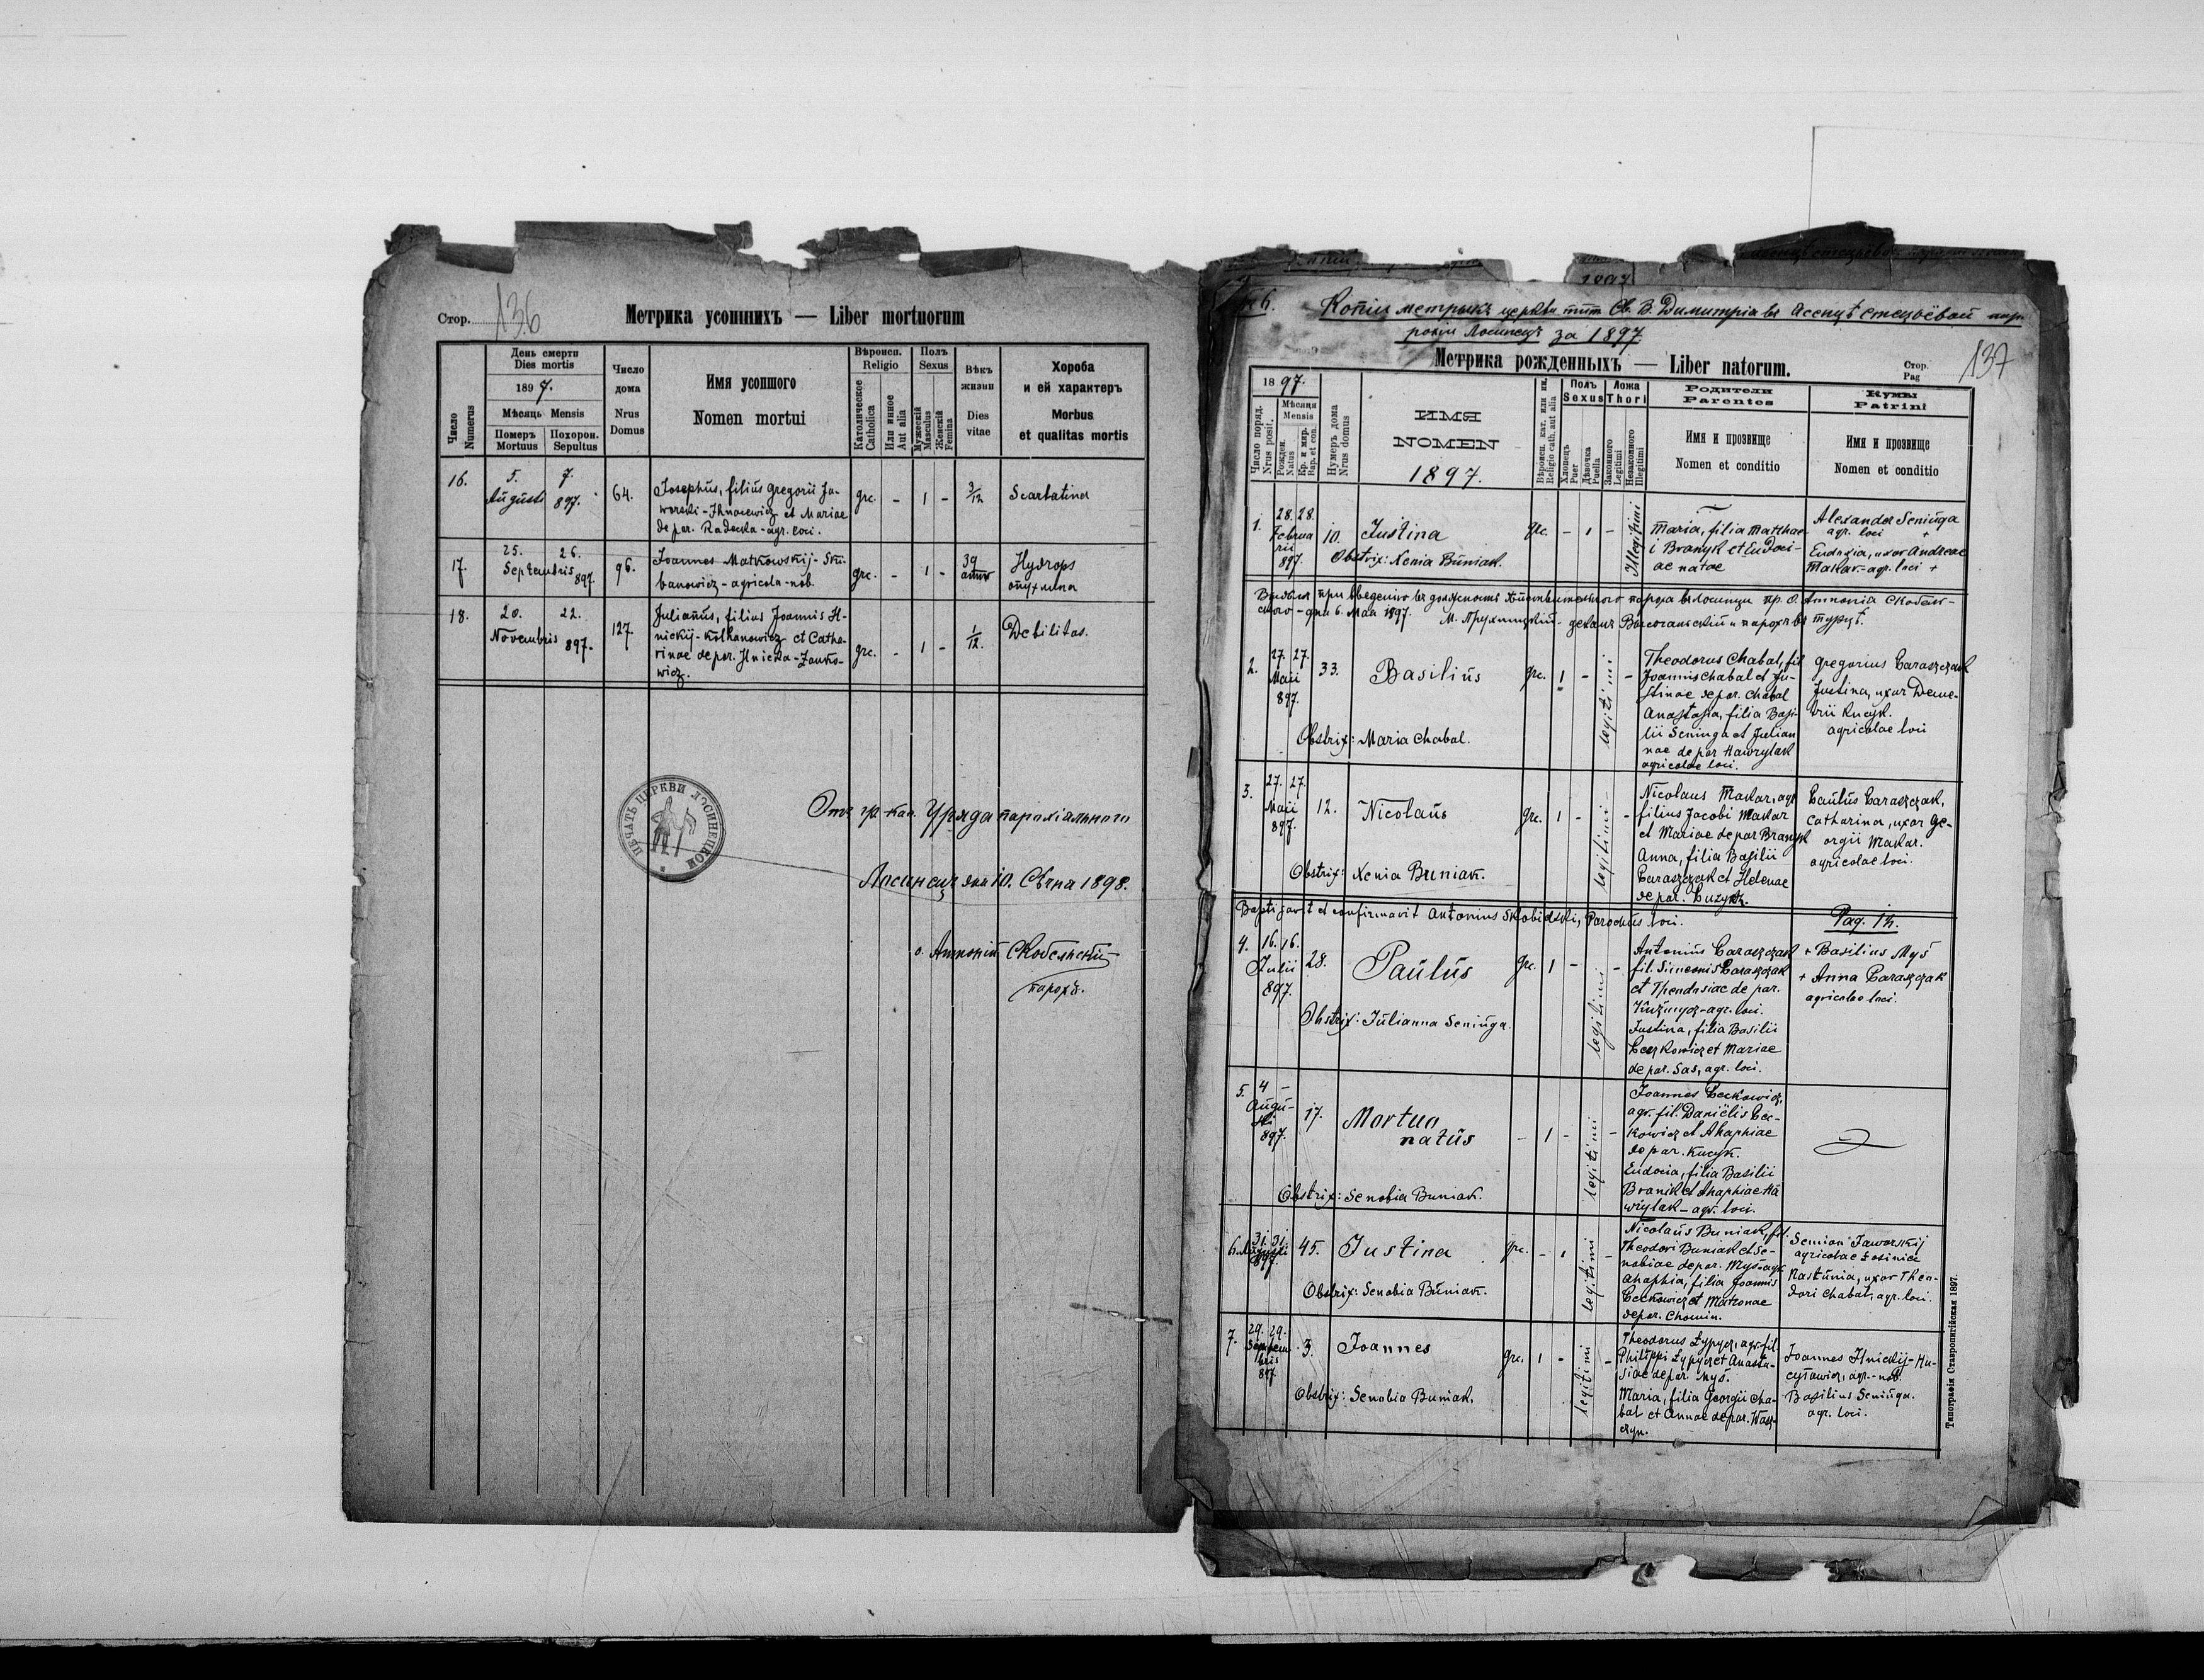 Стор. 136
Метрика усопшихъ — Liber mortuorum
Число
Numerus
День смерти
Dies mortis
1897.
Мѣсяць Mensis
Померъ
Mortuus
Похорон.
Sepultus
Число
дома
Nrus
Domus
Имя усопшого
Nomen mortui
Вѣроисп.
Religio
Католическое
Catholica
Или инное
Aut alia
Полъ
Sexus
Мужескій
Masculus
Женскій
Femina
Вѣкъ
жизни
Dies
vitae
Хороба
и ей характеръ
Morbus
et qualitas mortis
16. 5. 7. Augusti 897. 64.
Josephus, filius Gregorii Ja-
worski-Ihnacewicz et Mariae
de par. Radecka - agr. loci.
grc. - 1 - 3/12 Scarlatina
17. 25. 26. Septembris 897. 96.
Joannes Matkowskij - Ski-
banowicz - agricola - nob.
grc. - 1 - 39 annor Hydrops
опухлина
18. 20. 22. Novembris 897. 127.
Julianus, filius Joannis H-
nickij - Kolhanowicz et Catha-
rinae de par. Hnicka - Janko-
wicz.
grc. - 1 - 1/12. Debilitas.
ПЕЧАТЬ ЦЕРКВИ ЛОСИНЕЦКОИ
Отъ гр-кат. Уряда парохіального
Лосинецъ дня 10. Сѣчня 1898.
о. Антоній Скобельскій
парохъ.
Копія метрыкъ церкви тит Св. В. Димитрія въ
рохіи Лосинецъ за 1897
Метрика рожденныхъ — Liber natorum.
Стор.
Pag 137
1897.
Число поряд.
Nrus posit.
Мѣсяця
Mensis
Рожден.
Natus
Кр. и мир.
Bap. et con.
Нумеръ дома
Nrus domus
ИМЯ
NOMEN
1897.
Вѣроисп. кат. или ин.
Religio cath. aut alia
Полъ
Sexus
Хлопець
Puer
Дѣвочка
Puella
Ложа
Thori
Законного
Legitimi
Незаконного
Illegitimi
Родители
Parentes
Имя и прозвище
Nomen et conditio
Кумы
Patrini
Имя и прозвище
Nomen et conditio
1. 28. 28. Februarii 897. 10. Justina grc. - 1 - Illegitimi
Obstrix: Xenia Buniak.
Maria, filia Matthae-
i Branyk et Eudoci-
ae natae
Alexander Seniuga
agr. loci +
Eudoxia, uxor Andreae
Makar. - agr. loci +
парохъ въ Лосинци пр. О. Антонія Скобель-
ского - дня 6. Мая 1897. деканъ Высочаньскій и парохъ въ Турцѣ.
2. 27. 27. Maii 897. 33. Basilius grc. 1 - legitimi -
Obstrix: Maria Chabal.
Theodorus Chabal, fil
Joannis Chabal et Ju-
stinae de par. Chabal
Anastasia, filia Basi-
lii Seninga et Julian
nae de par Hawrylak
agricolae loci.
Gregorius Caraszczak
Justina, uxor Deme-
trii Kucyk.
agricolae loci
3. 27. 27. Maii 897. 12. Nicolaus grc. 1 - legitimi -
Obstrix: Xenia Buniak.
Nicolaus Makar, agr
filius Jacobi Makar
et Mariae de par Branyk
Anna, filia Basilii
Caraszczak et Helenae
de par.
Caulus Caraszczak,
Catharina, uxor Ge-
orgii Makar.
agricolae loci.
Baptizavit et confirmavit Antonius Skobielski, Parochus loci.
Pag. 13.
4. 16. 16. Julii 897. 28. Paulus grc. 1 - legitimi -
Obstrix: Julianna Seniuga.
Antonius Caraszczak
fil. Simeonis Caraszczak
et Theodosiae de par.
agr. loci.
Justina, filia Basilii
et Mariae
de par. Sas, agr. loci.
+ Basilius Myś
+ Anna Caraszczak
agricolae loci.
5. 4 - Augusti 897. 17. Mortuo
natus
- 1 - legitimi -
Obstrix: Senobia Buniak.
Joannes Ceckowicz,
agr. fil. Daniëlis Cec-
kowicz et Ahaphiae
de par. Kucyk.
Eudocia, filia Basilii
Branik et Ahaphiae Ha
wrylak - agr. loci.
6. 31. 31. Augusti 897. 45. Justina grc. - 1 legitimi -
Obstrix: Senobia Buniak.
Nicolaus Buniak, fil.
Theodori Buniak et Se-
nobiae de par. Myś-agr
Ahaphia, filia Joannis
Ceckowicz et Matronae
de par. Chomin.
Semion Jaworskij
agricolae Łosinice
Nastunia, uxor Theo-
dori Chabal, agr. loci.
7. 29. 29. Septembris 897. 3. Joannes grc. 1 - legitimi -
Obstrix: Senobia Buniak.
Theodorus Łypycz, agr. fil.
Philippi Łypycz et Anasta-
siae de par Myś.
Maria, filia Georgii Cha-
bal et Annae de par. Wasz-
czyn.
Joannes Ilnickij - Hu-
agr.- nob.
Basilius Seniuga.
agr. loci.
Типографія Ставропигійская 1897.